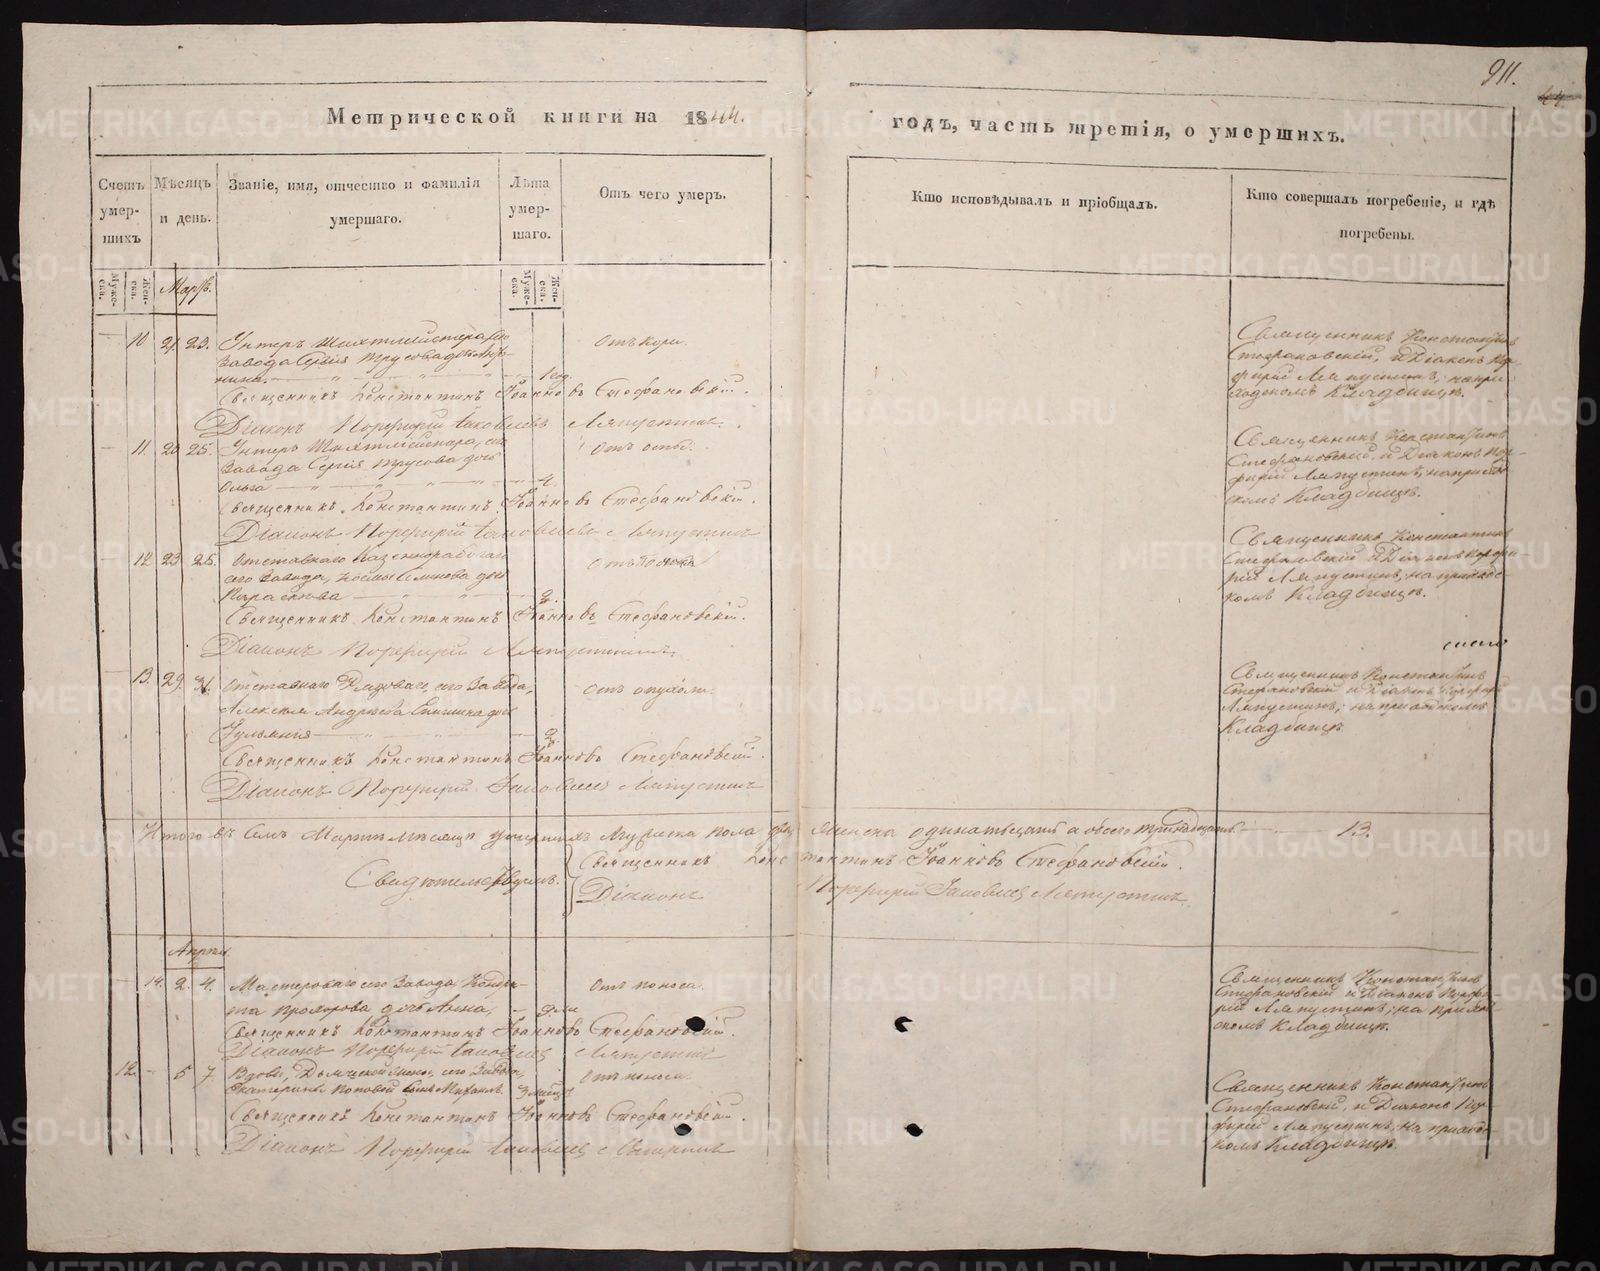 911.
44
Метрической книги на 1844.
годъ, часть третія, о умершихъ.
Счетъ умер-шихъ
Мѣсяцъ и день.
Званіе, имя, отчество и фамилія умершаго.
Лѣта умер-шаго.
Отъ чего умеръ.
Кто исповѣдывалъ и пріобщалъ.
Кто совершалъ погребеніе, и гдѣ погребены.
Муже-ска.
Жен-ска.
Муже-ска.
Жен-ска.
Мартъ.
10 21 23. Унтеръ Шихтмейстера, сего
Завода Сергія Трусова дочь
1 год.
Отъ кори.
Священникъ Константинъ
Стефановскій, и Діаконъ Пор-
фирій Ляпустинъ, на при-
ходскомъ Кладбищѣ.
Священникъ Константинъ Іоанновъ Стефановскій.
Діаконъ Порфирій Іаковлевъ Ляпустинъ.
11. 25. Унтеръ Шихтмейстера, сего
Завода Сергія Трусова дочь
Ольга
Отъ оспы.
Священникъ Константинъ
Стефановскій, и Діаконъ Пор-
фирій Ляпустинъ, на приход-
скомъ Кладбищѣ.
Священникъ Константинъ Іоанновъ Стефановскій.
Діаконъ Порфирій Іаковлевъ Ляпустинъ
12 23 25. Отставнаго
сего Завода, Семенова дочь
Параскева 2.
Отъ поноса
Священникъ Константинъ
Стефановскій и Діаконъ Порфи-
рій Ляпустинъ, на приход-
скомъ Кладбищѣ.
Священникъ Константинъ Іоанновъ Стефановскій.
Діаконъ Порфирій Ляпустинъ.
13. 29. 31. Отставнаго сего Завода,
Алексѣя Андреева дочь
2.
Отъ опухоли.
Священникъ Константинъ
Стефановскій и Діаконъ Порфирій
Ляпустинъ, на приходскомъ
Кладбищѣ.
Священникъ Константинъ Іоанновъ Стефановскій.
Діаконъ Порфирій Іаковлевъ Ляпустинъ
Итого въ семъ Мартѣ Мѣсяцѣ умершихъ Мужеска пола два Женска одинатьцать а обоего тринадцать 13.
Свидѣтельствуемъ.
Священникъ Константинъ Іоанновъ Стефановскій.
Діаконъ Порфирій Іаковлевъ Ляпустинъ
Апрѣль
14. 2. 4. Мастероваго сего Завода Кондра-
та Прохорова дочь Анна,
Отъ поноса.
Священникъ Константинъ
Стефановскій и Діаконъ Порфи-
рій Ляпустинъ, на приход-
скомъ Кладбищѣ.
Священникъ Константинъ Іоанновъ Стефановскій.
Діаконъ Порфирій Іаковлевъ Ляпустинъ
12. 5 7 Вдовы, сего Завода,
Екатерины Поповой сынъ Михаилъ. 3 мѣсяц.
Отъ поноса.
Священникъ Константинъ
Стефановскій, и Діаконъ Пор-
фирій Ляпустинъ, на приход-
скомъ Кладбищѣ.
Священникъ Константинъ Іоанновъ Стефановскій.
Діаконъ Порфирій Іаковлевъ Ляпустинъ
METRIKI.GASO-URAL.RU